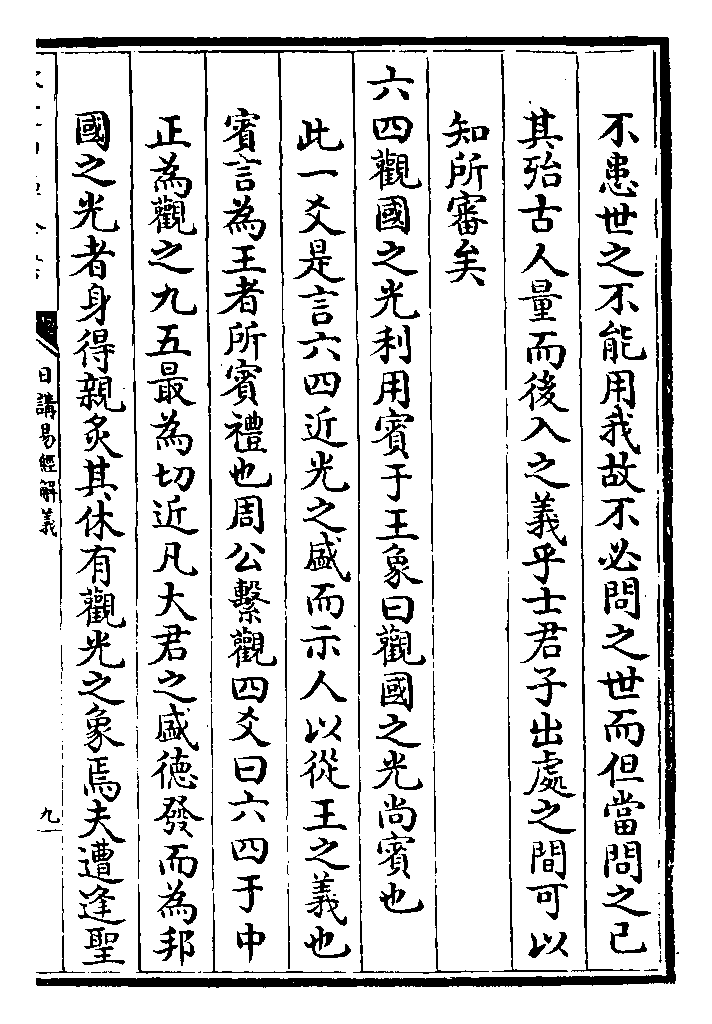 不患世之不能用我故不必問之世而但當問之己
其殆古人量而後入之義乎士君子出處之間可以
知所審矣
六四觀國之光利用賓于王象曰觀國之光尚賓也
此一爻是言六四近光之盛而示人以從王之義也
賓言為王者所賓禮也周公繫觀四爻曰六四于中
正為觀之九五最為切近凡大君之盛德發而為邦
國之光者身得親炙其休有觀光之象焉夫遭逢聖
日講易經解義
九